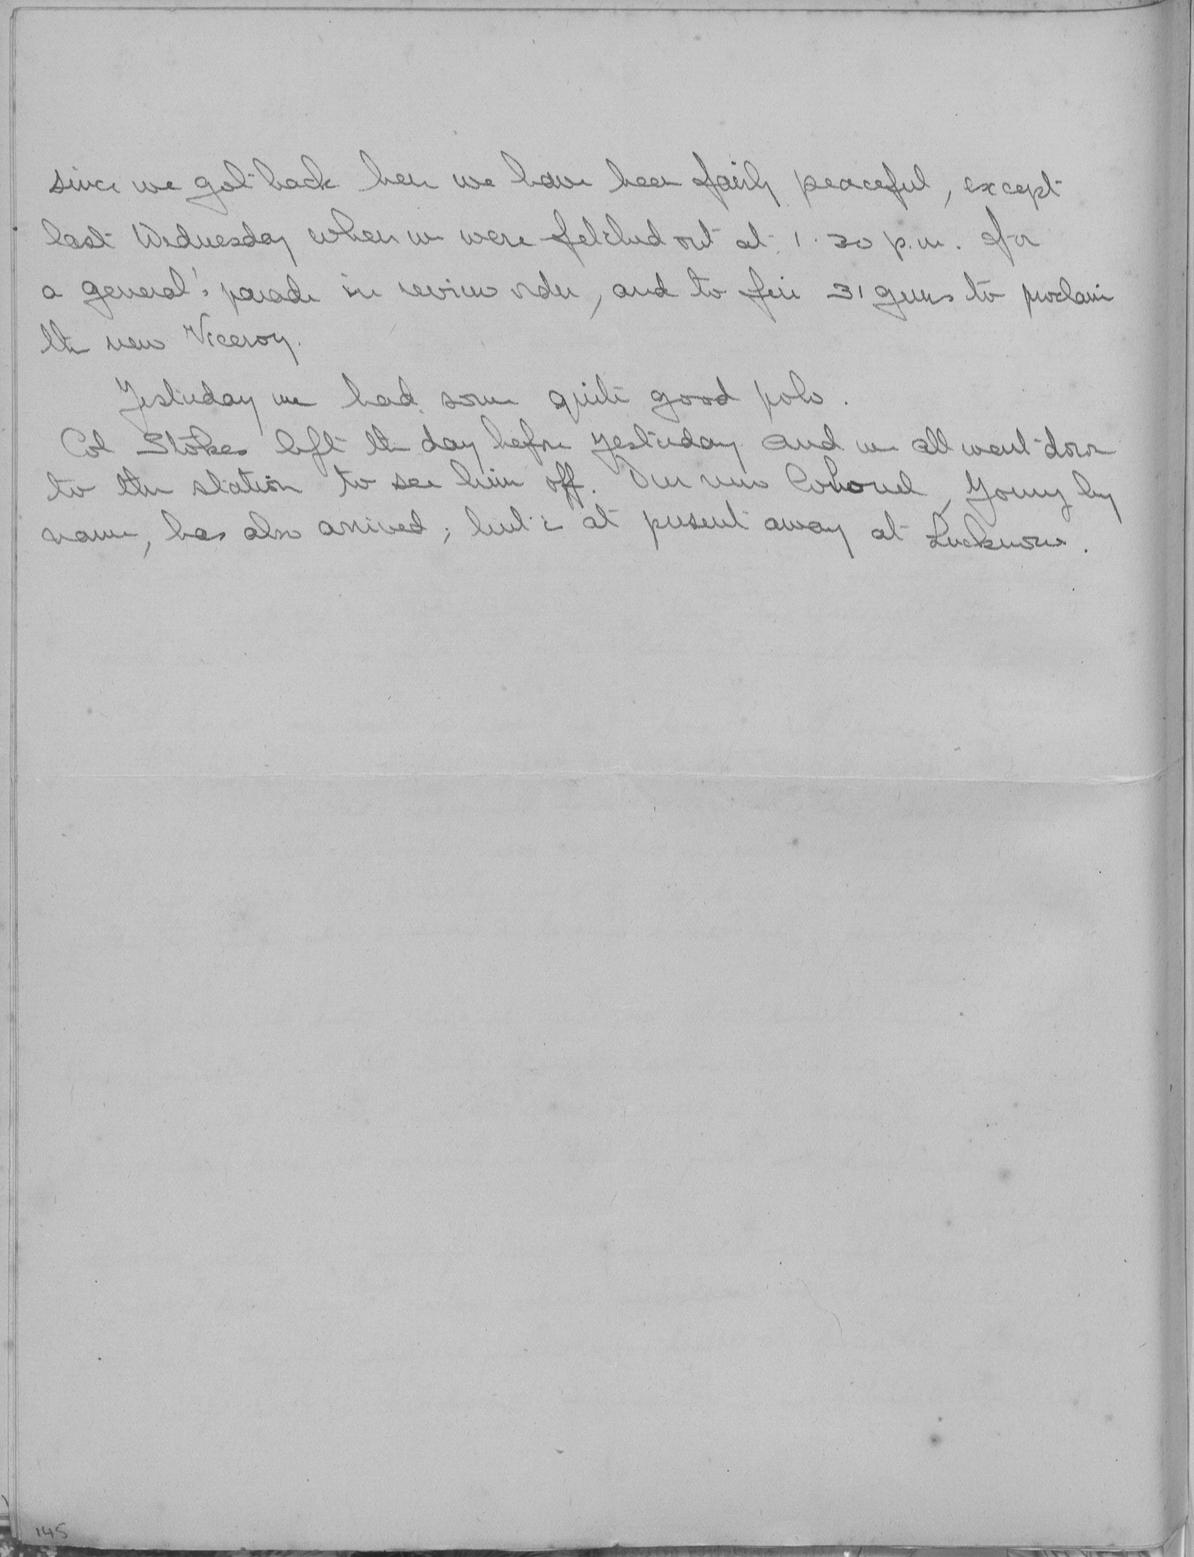 since we got back here we have been fairly peaceful, except
last Wednesday when we were fetched out at 1.30 p.m. for
a general's parade in review order, and to fire 31 guns to proclaim
the new Viceroy.
Yesterday we had some quite good polo.
Col Stokes left the day before yesterday and we all went down
to the station to see him off. Our new Colonel, Young by
name, has also arrived; but is at present away at Lucknow.
145